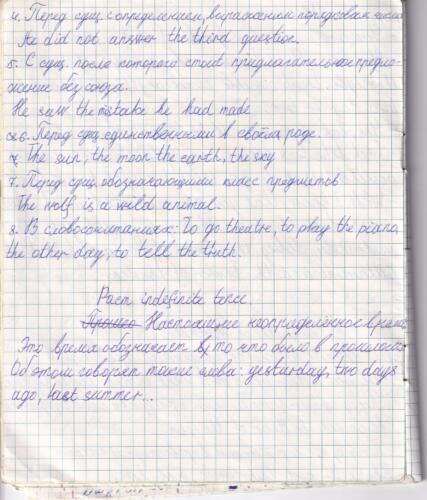 4. Перед сущ. с определением, выраженным порядковым числом
He did not answer the third question.
5. С сущ. после которого стоит придлагательное предло-
жение без союза.
He saw the mistake he had made
6. Перед сущ. единственными в своём роде.
The sun, the moon the earth, the sky
7. Перед сущ. обозначающими класс предметов
The wolf is a wild animal.
8. В словосочитаниях: To go theatre, to play the piano,
the other day, to tell the truth.
Past indefinite tence
Настоящее неопределённое время
Это время обозначает то что было в прошлом
Об этом говорят такие слова: yesturday, two days
ago, last summer...